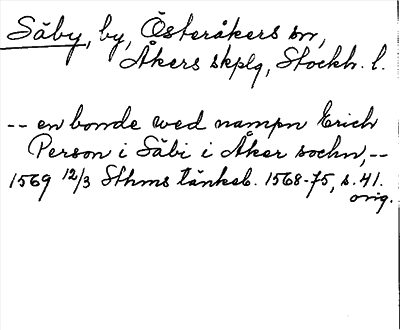 Säby, by, Österåkers sn,
Åkers skplg, Stockh. l.
-- en bonde wed nampn Erich
Person i Säbi i Åker sochn, --
1569 12/3 Sthms tänkeb. 1568-75, s. 41.
orig.